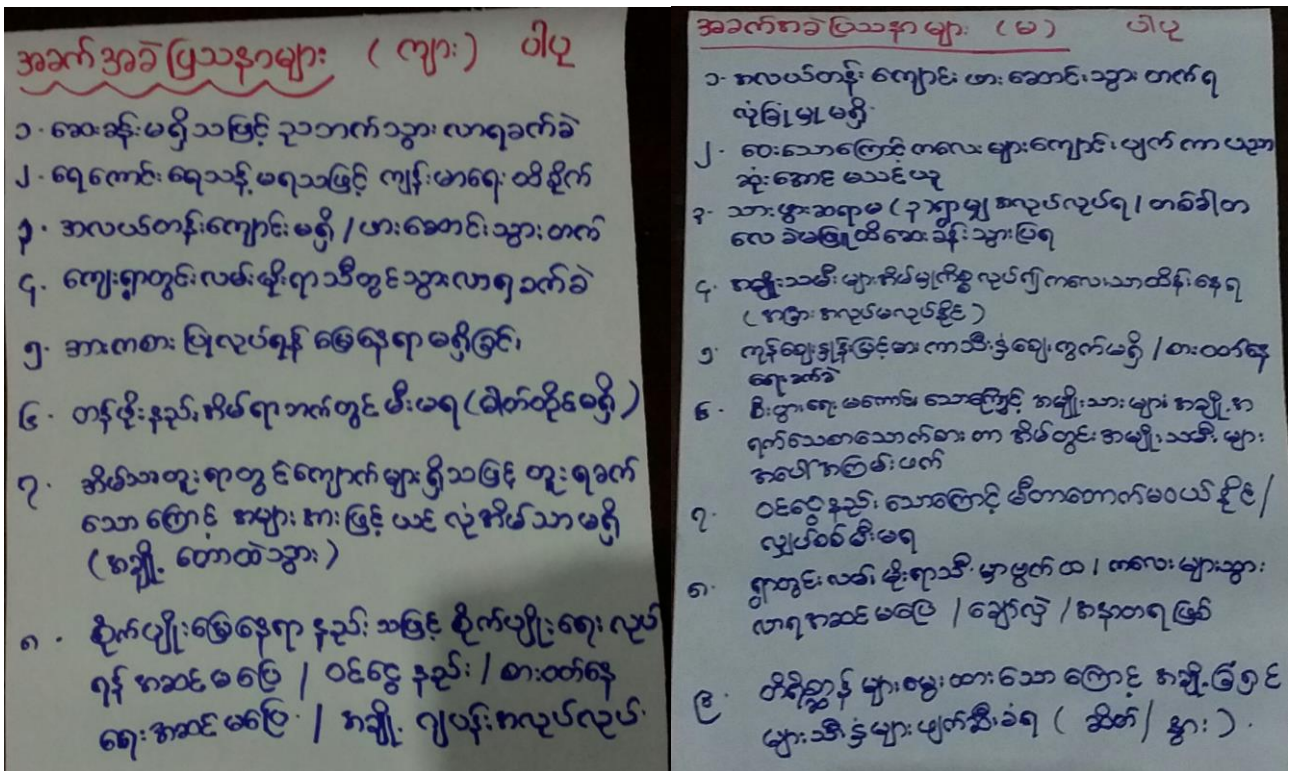 အခက်အခဲပြဿနာများ (ကျား) ပါပု
၁. ဆေးခန်းမရှိသဖြင့် ညဘက်သွားလာရခက်ခဲ
၂. ရေကောင်းရေသန့်မရသဖြင့် ကျန်းမာရေးထိခိုက်
၃. အလယ်တန်းကျောင်းမရှိ / ဖားဆောင်းသွားတက်
၄. ကျေးရွာတွင်းလမ်းမိုးရာသီတွင်သွားလာရခက်ခဲ
၅. အားကစားပြုလုပ်ရန် မြေနေရာမရှိခြင်း
၆. တန်ဖိုးနည်းအိမ်ရာဘက်တွင် မီးမရ (ဓါတ်တိုင်မရှိ)
၇. အိမ်သာတူးရာတွင်ကျောက်များရှိသဖြင့် တူးရခက်
သောကြောင့် အများအားဖြင့် ယင်လုံအိမ်သာမရှိ
(အချို့ တောထဲသွား)
၈. စိုက်ပျိုးမြေနေရာနည်းသဖြင့် စိုက်ပျိုးရေးလုပ်
ရန် အဆင်မပြေ / ဝင်ငွေနည်း / စားဝတ်နေ
ရေးအဆင်မပြေ / အချို့ ကျပန်းအလုပ်လုပ်
အခက်အခဲပြဿနာများ (မ) ပါပု
၁. အလယ်တန်းကျောင်း ဖားဆောင်းသွားတက်ရ
လုံခြုံမှုမရှိ
၂. ဝေးသောကြောင့်ကလေးများကျောင်းပျက်ကာပညာ
ဆုံးအောင်မသင်ယူ
၃. သားဖွားဆရာမ (၃)ရွာမျှအလုပ်လုပ်ရ / တစ်ခါတ
လေခဲမဖြူထိဆေးခန်းသွားပြရ
၄. အမျိုးသမီးများအိမ်မှုကိစ္စလုပ်၍ကလေးသာထိန်းနေရ
(အခြားအလုပ်မလုပ်နိုင်)
၅. ကုန်ဈေးနှုန်းမြင့်မားကာသီးနှံဈေးကွက်မရှိ / စားဝတ်နေ
ရေးခက်ခဲ
၆. စီးပွားရေးမကောင်းသောကြောင့် အမျိုးသားများအချို့အ
ရက်သေစာသောက်စားတာ အိမ်တွင်းအမျိုးသမီးများ
အပေါ်အကြမ်းဖက်
၇. ဝင်ငွေနည်းသောကြောင့် မီတာတောက်မဝယ်နိုင် /
လျှပ်စစ်မီးမရ
၈. ရွာတွင်းလမ်းမိုးရာသီမှာဗွက်ထ / ကလေးများသွား
လာရအဆင်မပြေ / ချော်လဲ / အနာတရဖြစ်
၉. တိရိစ္ဆာန်များမွေးထားသောကြောင့် အချို့ခြံရှင်
များသီးနှံများပျက်စီးခံရ (ဆိတ် / နွား).